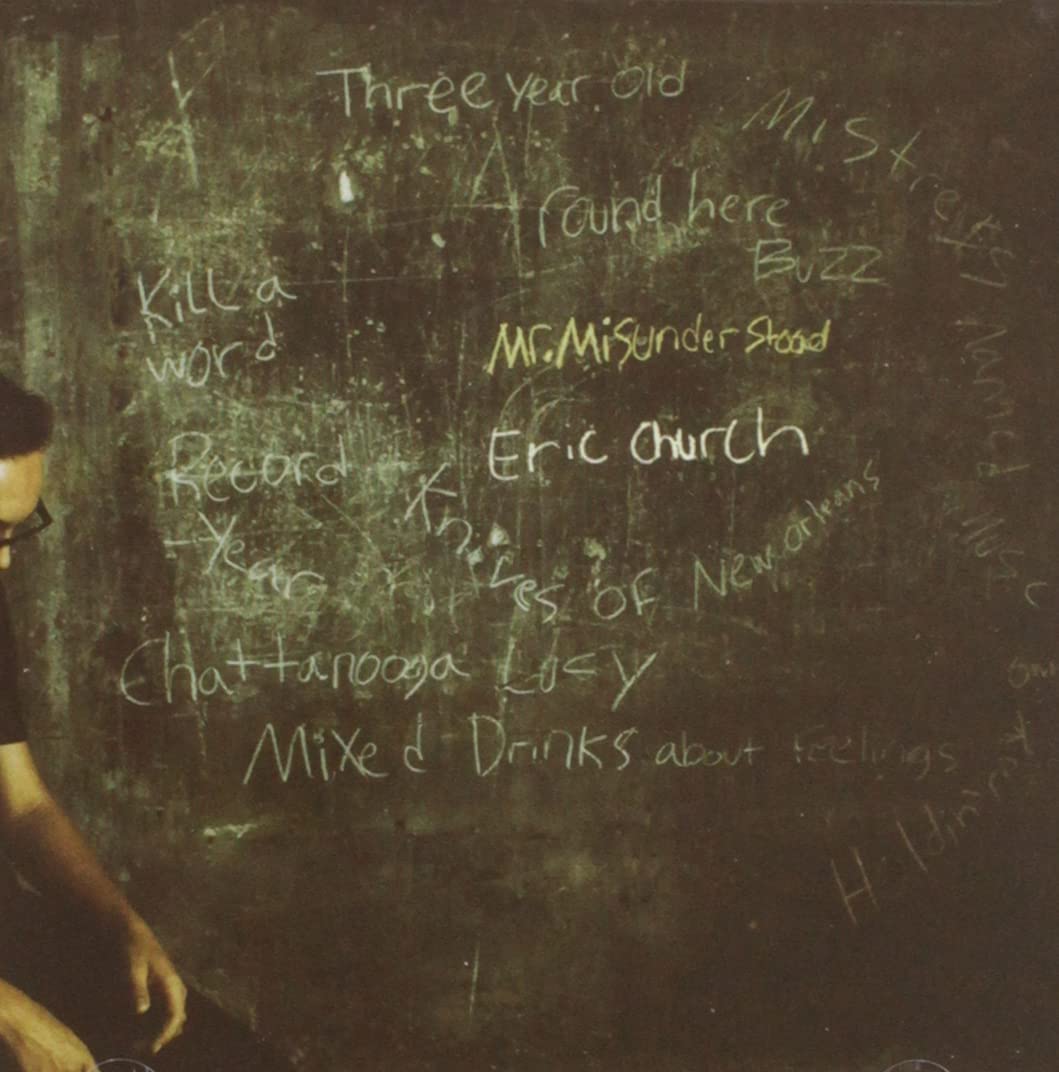 Three year old
Mistress
Named Music
round here
Buzz
Kill a
word
Mr. Misunderstood
Eric Church
Record
Year
Knives of New Orleans
Chattanooga Lucy
Mixed Drinks about feelings
Holdin